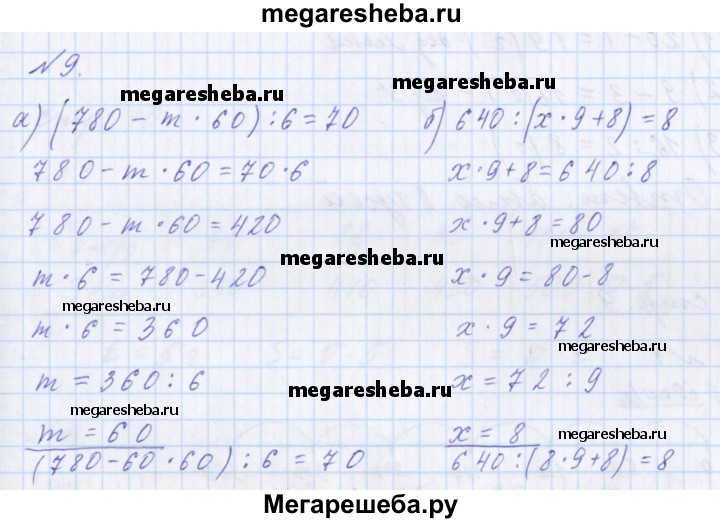 megaresheba.ru
№9.
megaresheba.ru megaresheba.ru
а) (780 - m · 60) : 6 = 70 б) 640 : (x · 9 + 8) = 8
780 - m · 60 = 70 · 6 x · 9 + 8 = 640 : 8
780 - m · 60 = 420 x · 9 + 8 = 80
megaresheba.ru megaresheba.ru
m · 6 = 780 - 420 x · 9 = 80 - 8
megaresheba.ru
m · 6 = 360 x · 9 = 72
megaresheba.ru megaresheba.ru
m = 360 : 6 x = 72 : 9
megaresheba.ru megaresheba.ru
m = 60 x = 8
(780 - 60 · 60) : 6 = 70 640 : (8 · 9 + 8) = 8
Мегарешеба.ру